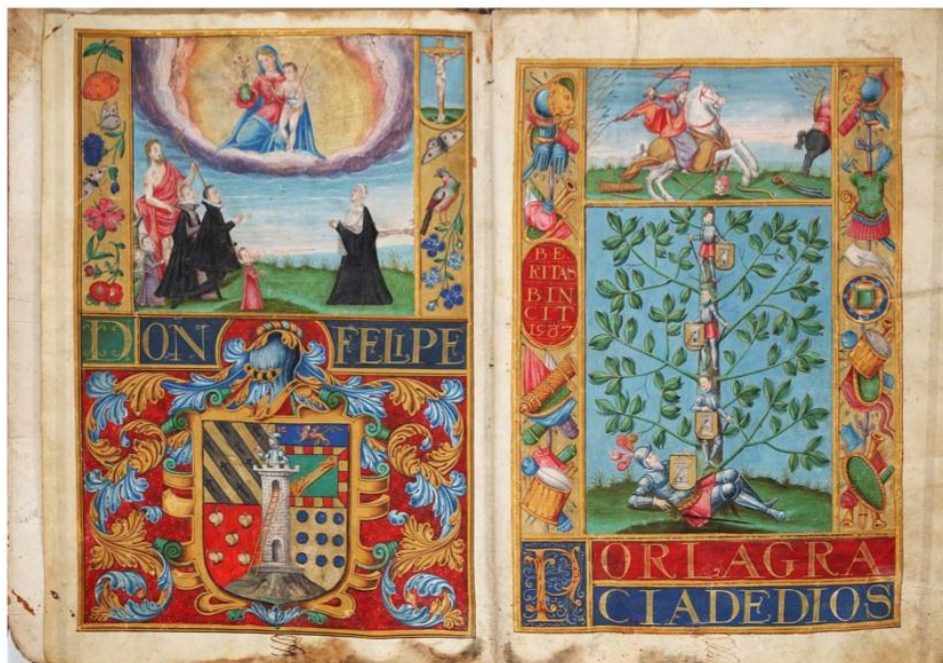 DON FELIPE
BE
RITAS
BIN
CIT
1587
POR LA GRA
CIA DE DIOS